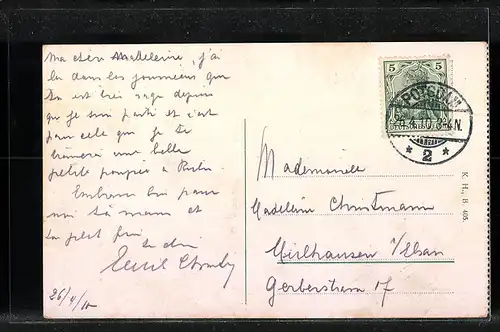 Ma chère Madeleine, j'ai
lu dans les journeaux que
tu est très sage depuis
que je suis parti et c'est
pour cela que je te
une belle
petite poupée à Berlin.
bien pour
moi ta maman et
la petit
26/4/10
5 5
POTSDAM
4.10.3-4N.
* 2 *
Mademoiselle
Madeleine Christmann
Mülhausen i/Elsass
Gerberstrasse 17
K. H., B. 405.